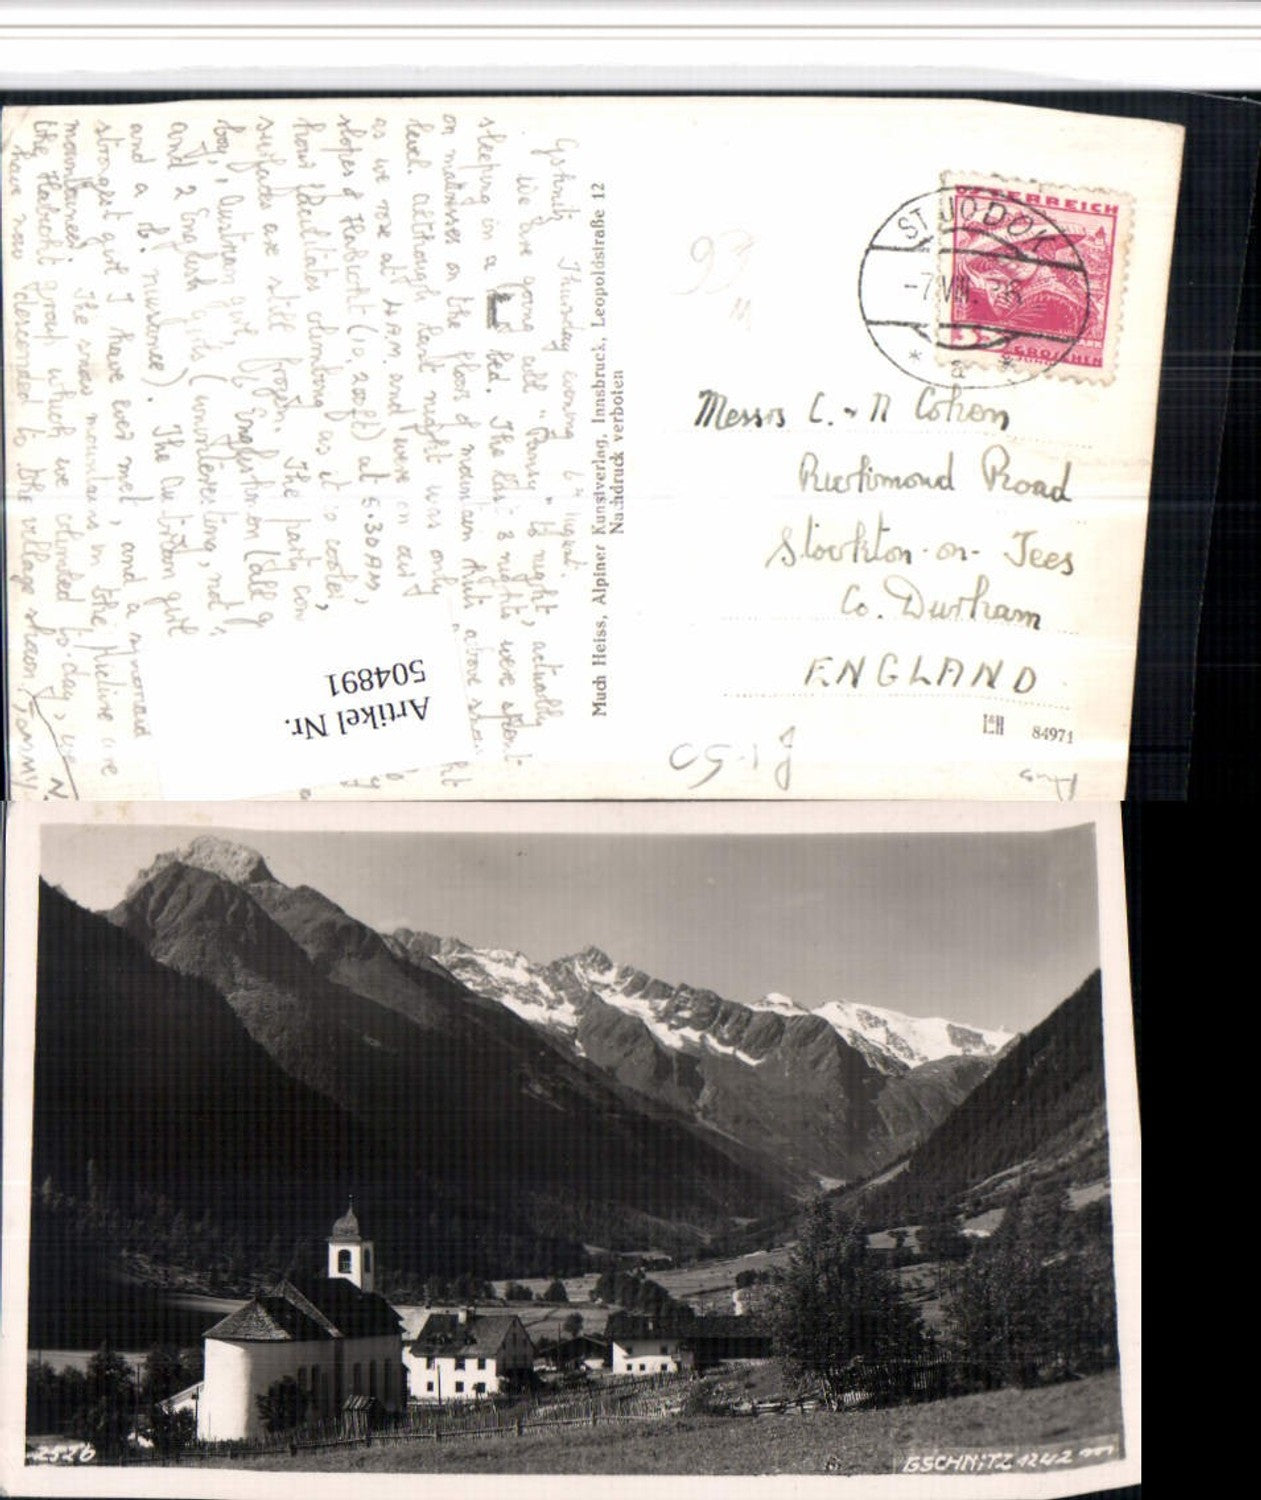 Gschnitz Thursday evening 6th August.
We are going all "Pansy" to-night, actually
sleeping in a bed. The last 3 nights were spent
on matresses on the floor of mountain huts above snow
level. Although last night was only
as we rose at 4 A.M. and were on our
slopes of Habicht (10,200 ft) at 5.30 AM,
hour facilitates climbing as it is cooler,
surfaces are still frozen. The party con
boy, Austrian girl, Englishman (all g
and 2 English girls (uninteresting, not
and a b. nuisance). The Austrian girl
strongest girl I have ever met, and a
mountaineer. The snow mountains in the picture are
the Habicht group which we climbed to-day, we
have now descended to the village shown,
Much Heiss, Alpiner Kunstverlag, Innsbruck, Leopoldstraße 12
Nachdruck verboten
93
ÖSTERREICH
GROSCHEN
ST. JODOK
-7.VIII.36
Messrs C. & N Cohen
Richmond Road
Stockton-on-Tees
Co. Durham
ENGLAND
84971
1.50
Artikel Nr.
504891
2526
GSCHNITZ 1242 m